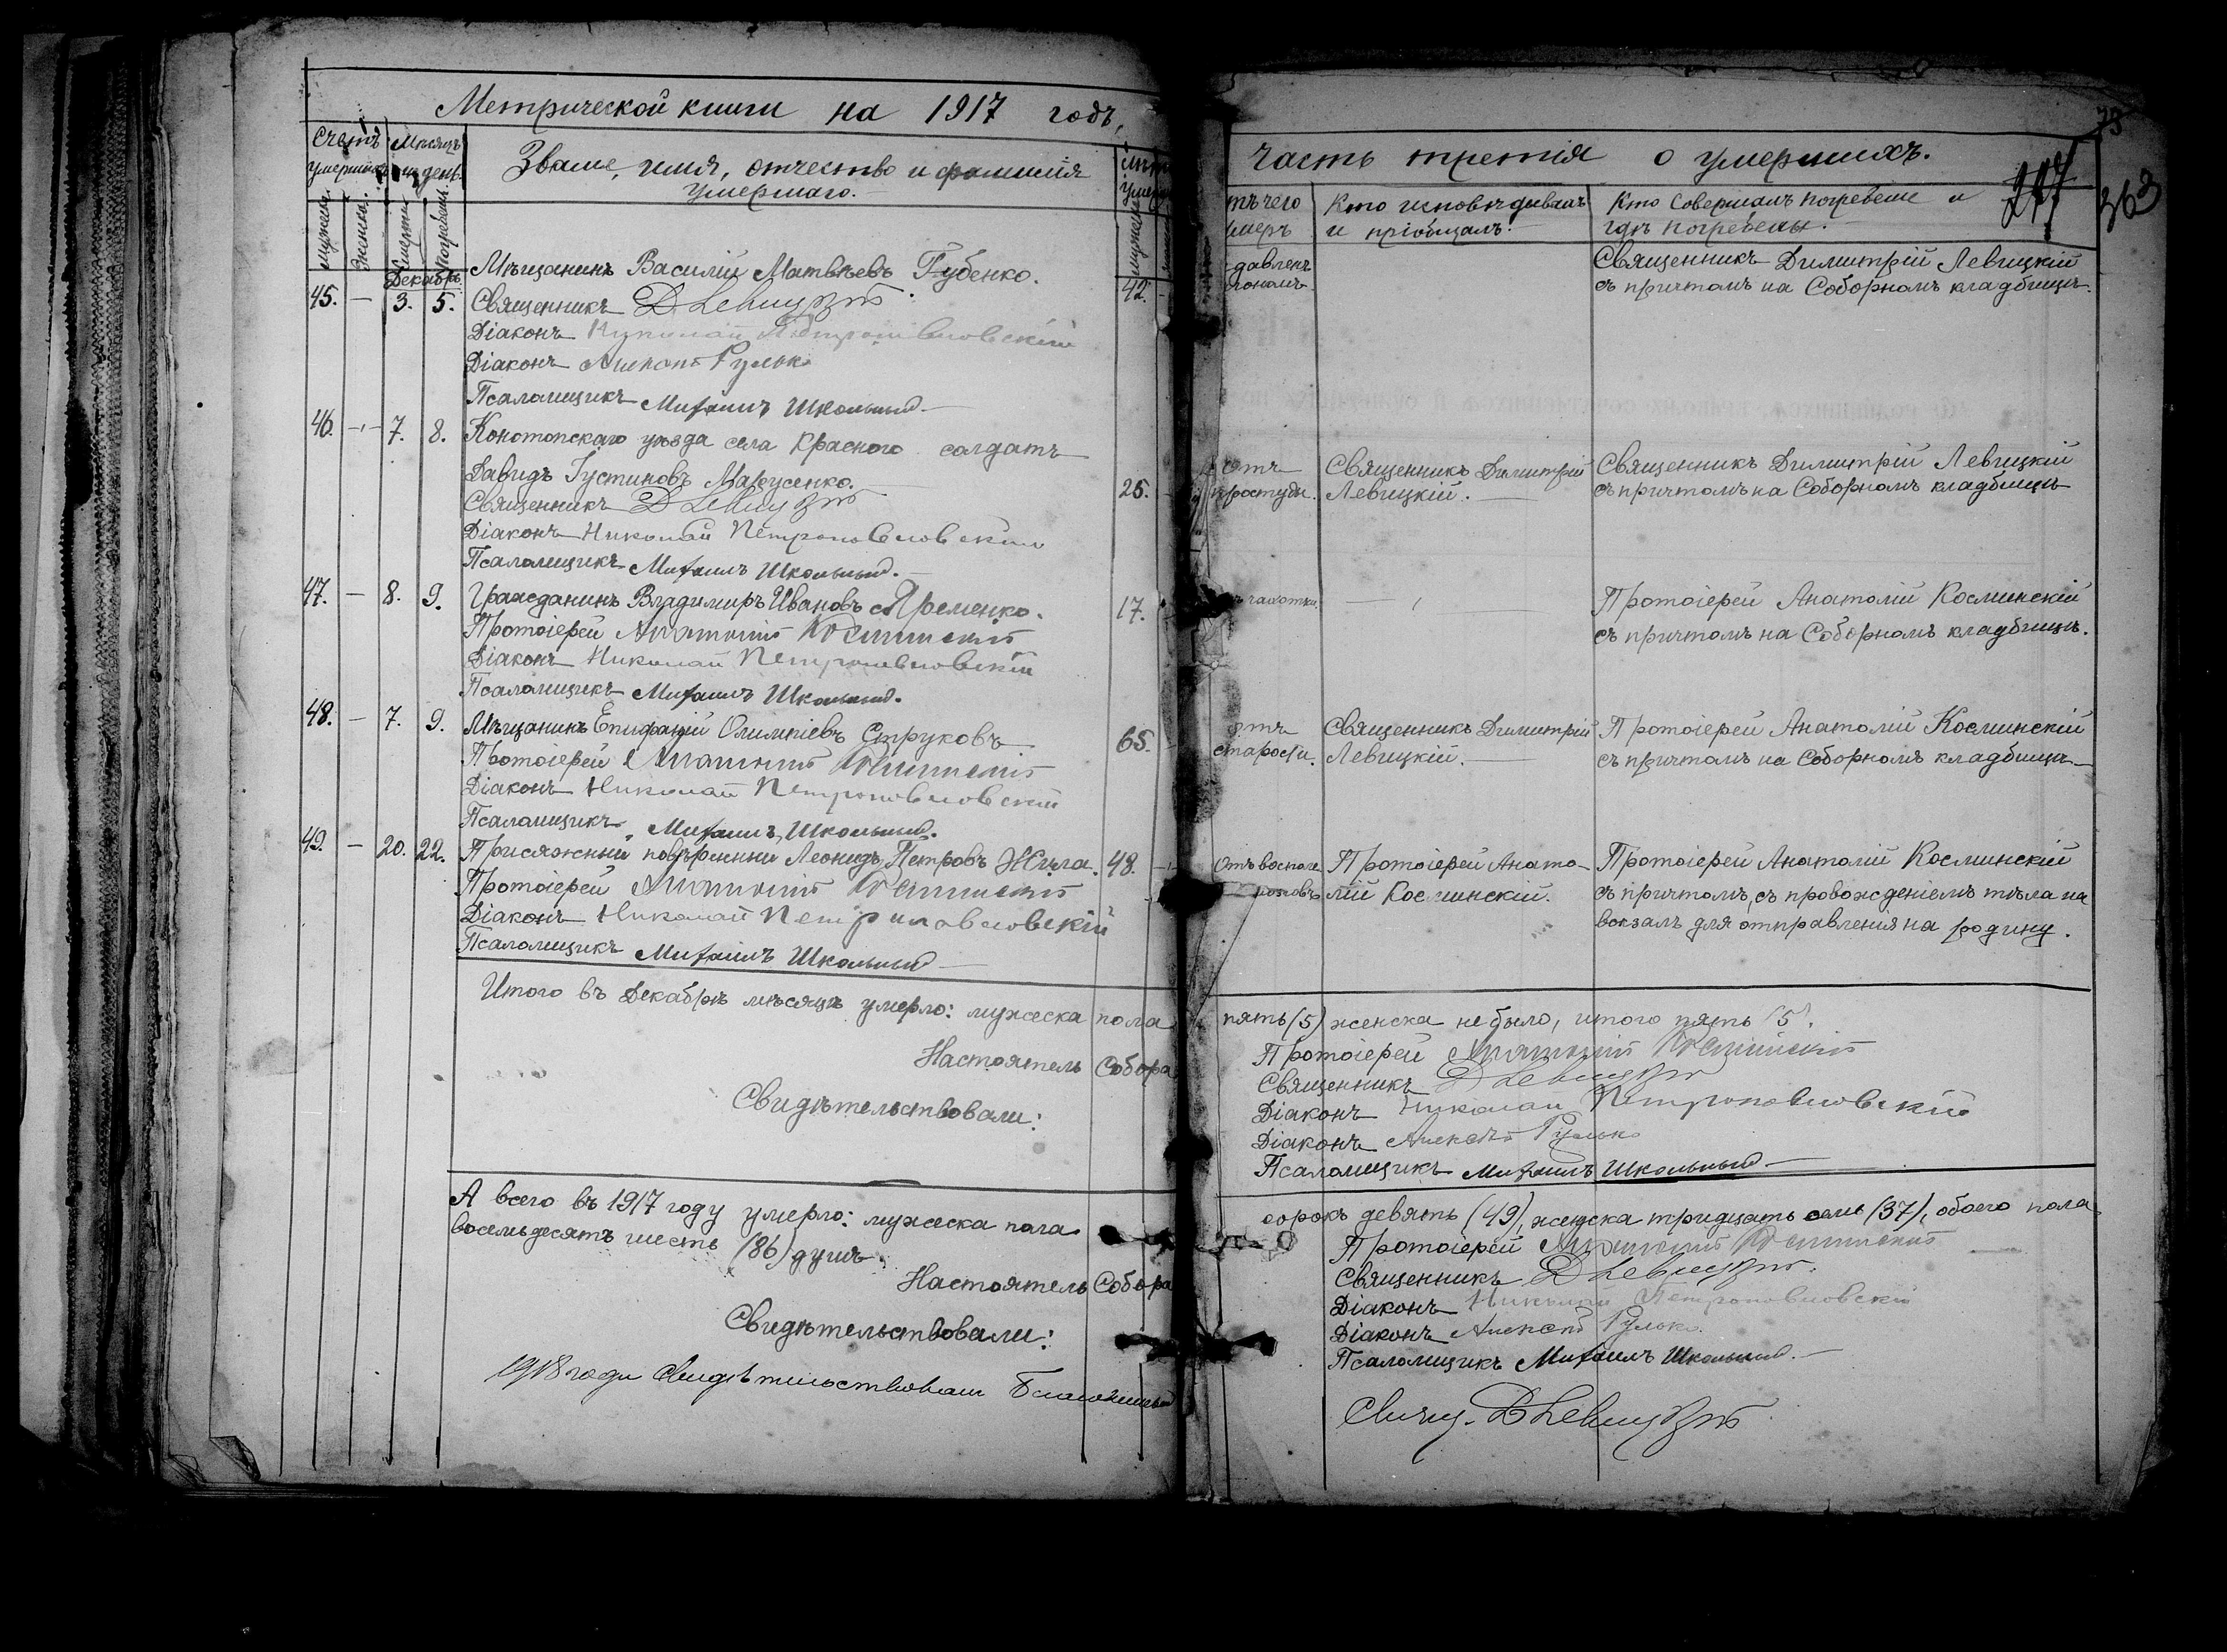 Метрической книги на 1917 годъ,
Счетъ умершихъ.
Мѣсяцъ и день.
Званіе, имя, отчество и фамилія
умершаго.
мужеска.
женска.
Смерти
Погребенія.
Декабрь.
45. — 3. 5. Мѣщанинъ Василій Матвѣевъ Губенко. 42.
Священникъ Д Левицкій
Діаконъ Николай Петропавловскій
Діаконъ Алексѣй Рулько
Псаломщикъ Михаилъ Школьный.
46. — 7. 8. Конотопскаго уѣзда села Красного солдатъ
Давидъ Іустиновъ Марусенко. 25.
Священникъ Д Левицкій
Діаконъ Николай Петропавловскій
Псаломщикъ Михаилъ Школьный.
47. — 8. 9. Гражданинъ Владимиръ Ивановъ Яременко. 17.
Протоіерей Анатолій Косминскій
Діаконъ Николай Петропавловскій
Псаломщикъ Михаилъ Школьный.
48. — 7. 9. Мѣщанинъ Епифаній Олимпіевъ Струковъ 65.
Протоіерей Анатолій Косминскій
Діаконъ Николай Петропавловскій
Псаломщикъ Михаилъ Школьный.
49. — 20. 22. Присяжный повѣренный Леонидъ Петровъ Жила. 48.
Протоіерей Анатолій Косминскій
Діаконъ Николай Петропавловскій
Псаломщикъ Михаилъ Школьный
Итого въ Декабрѣ мѣсяцѣ умерло: мужеска пола
Настоятель Собора
Свидѣтельствовали:
А всего въ 1917 году умерло: мужеска пола
восемьдесятъ шесть (86) душъ.
Настоятель Собора
Свидѣтельствовали:
1918 года свидѣтельствовалъ Благочинный
75
часть третія о умершихъ.
363
тъ чего
меръ
Кто исповѣдывалъ
и пріобщалъ.
Кто Совершалъ погребеніе и
гдѣ погребены.
давленъ
Священникъ Димитрій Левицкій
съ причтомъ на Соборномъ кладбищѣ.
отъ
простуды.
Священникъ Димитрій
Левицкій.
Священникъ Димитрій Левицкій
съ причтомъ на Соборномъ кладбищѣ
чахотки.
Протоіерей Анатолій Косминскій
съ причтомъ на Соборномъ кладбищѣ.
отъ
старости.
Священникъ Димитрій
Левицкій.
Протоіерей Анатолій Косминскій
съ причтомъ на Соборномъ кладбищѣ
Отъ
Протоіерей Анато-
лій Косминскій.
Протоіерей Анатолій Косминскій
съ причтомъ, съ провожденіемъ тѣла на
вокзалъ для отправленія на родину.
пять (5) женска не было, итого пять (5).
Протоіерей Анатолій Косминскій
Священникъ Д Левицкій
Діаконъ Николай Петропавловскій
Діаконъ Алексѣй Рулько
Псаломщикъ Михаилъ Школьный
сорокъ девять (49), женска тридцать семь (37), обоего пола
Протоіерей Анатолій Косминскій
Священникъ Д Левицкій.
Діаконъ Николай Петропавловскій
Діаконъ Алексѣй Рулько.
Псаломщикъ Михаилъ Школьный.
Свящ. Д Левицкій